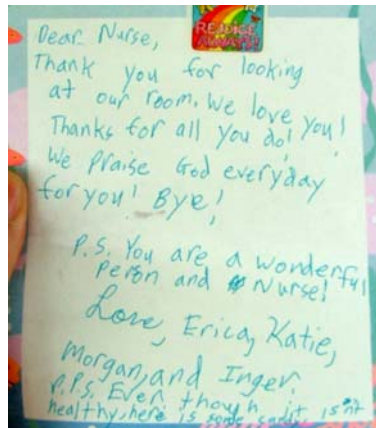 REJOICE
ALWAYS!
Dear Nurse,
Thank you for looking
at our room. We love you!
Thanks for all you do!
We praise God everyday
for you! Bye!
P.S. You are a wonderful
person and Nurse!
Love, Erica, Katie,
Morgan, and Inger
P.P.S. Even though
healthy, here is some isnt